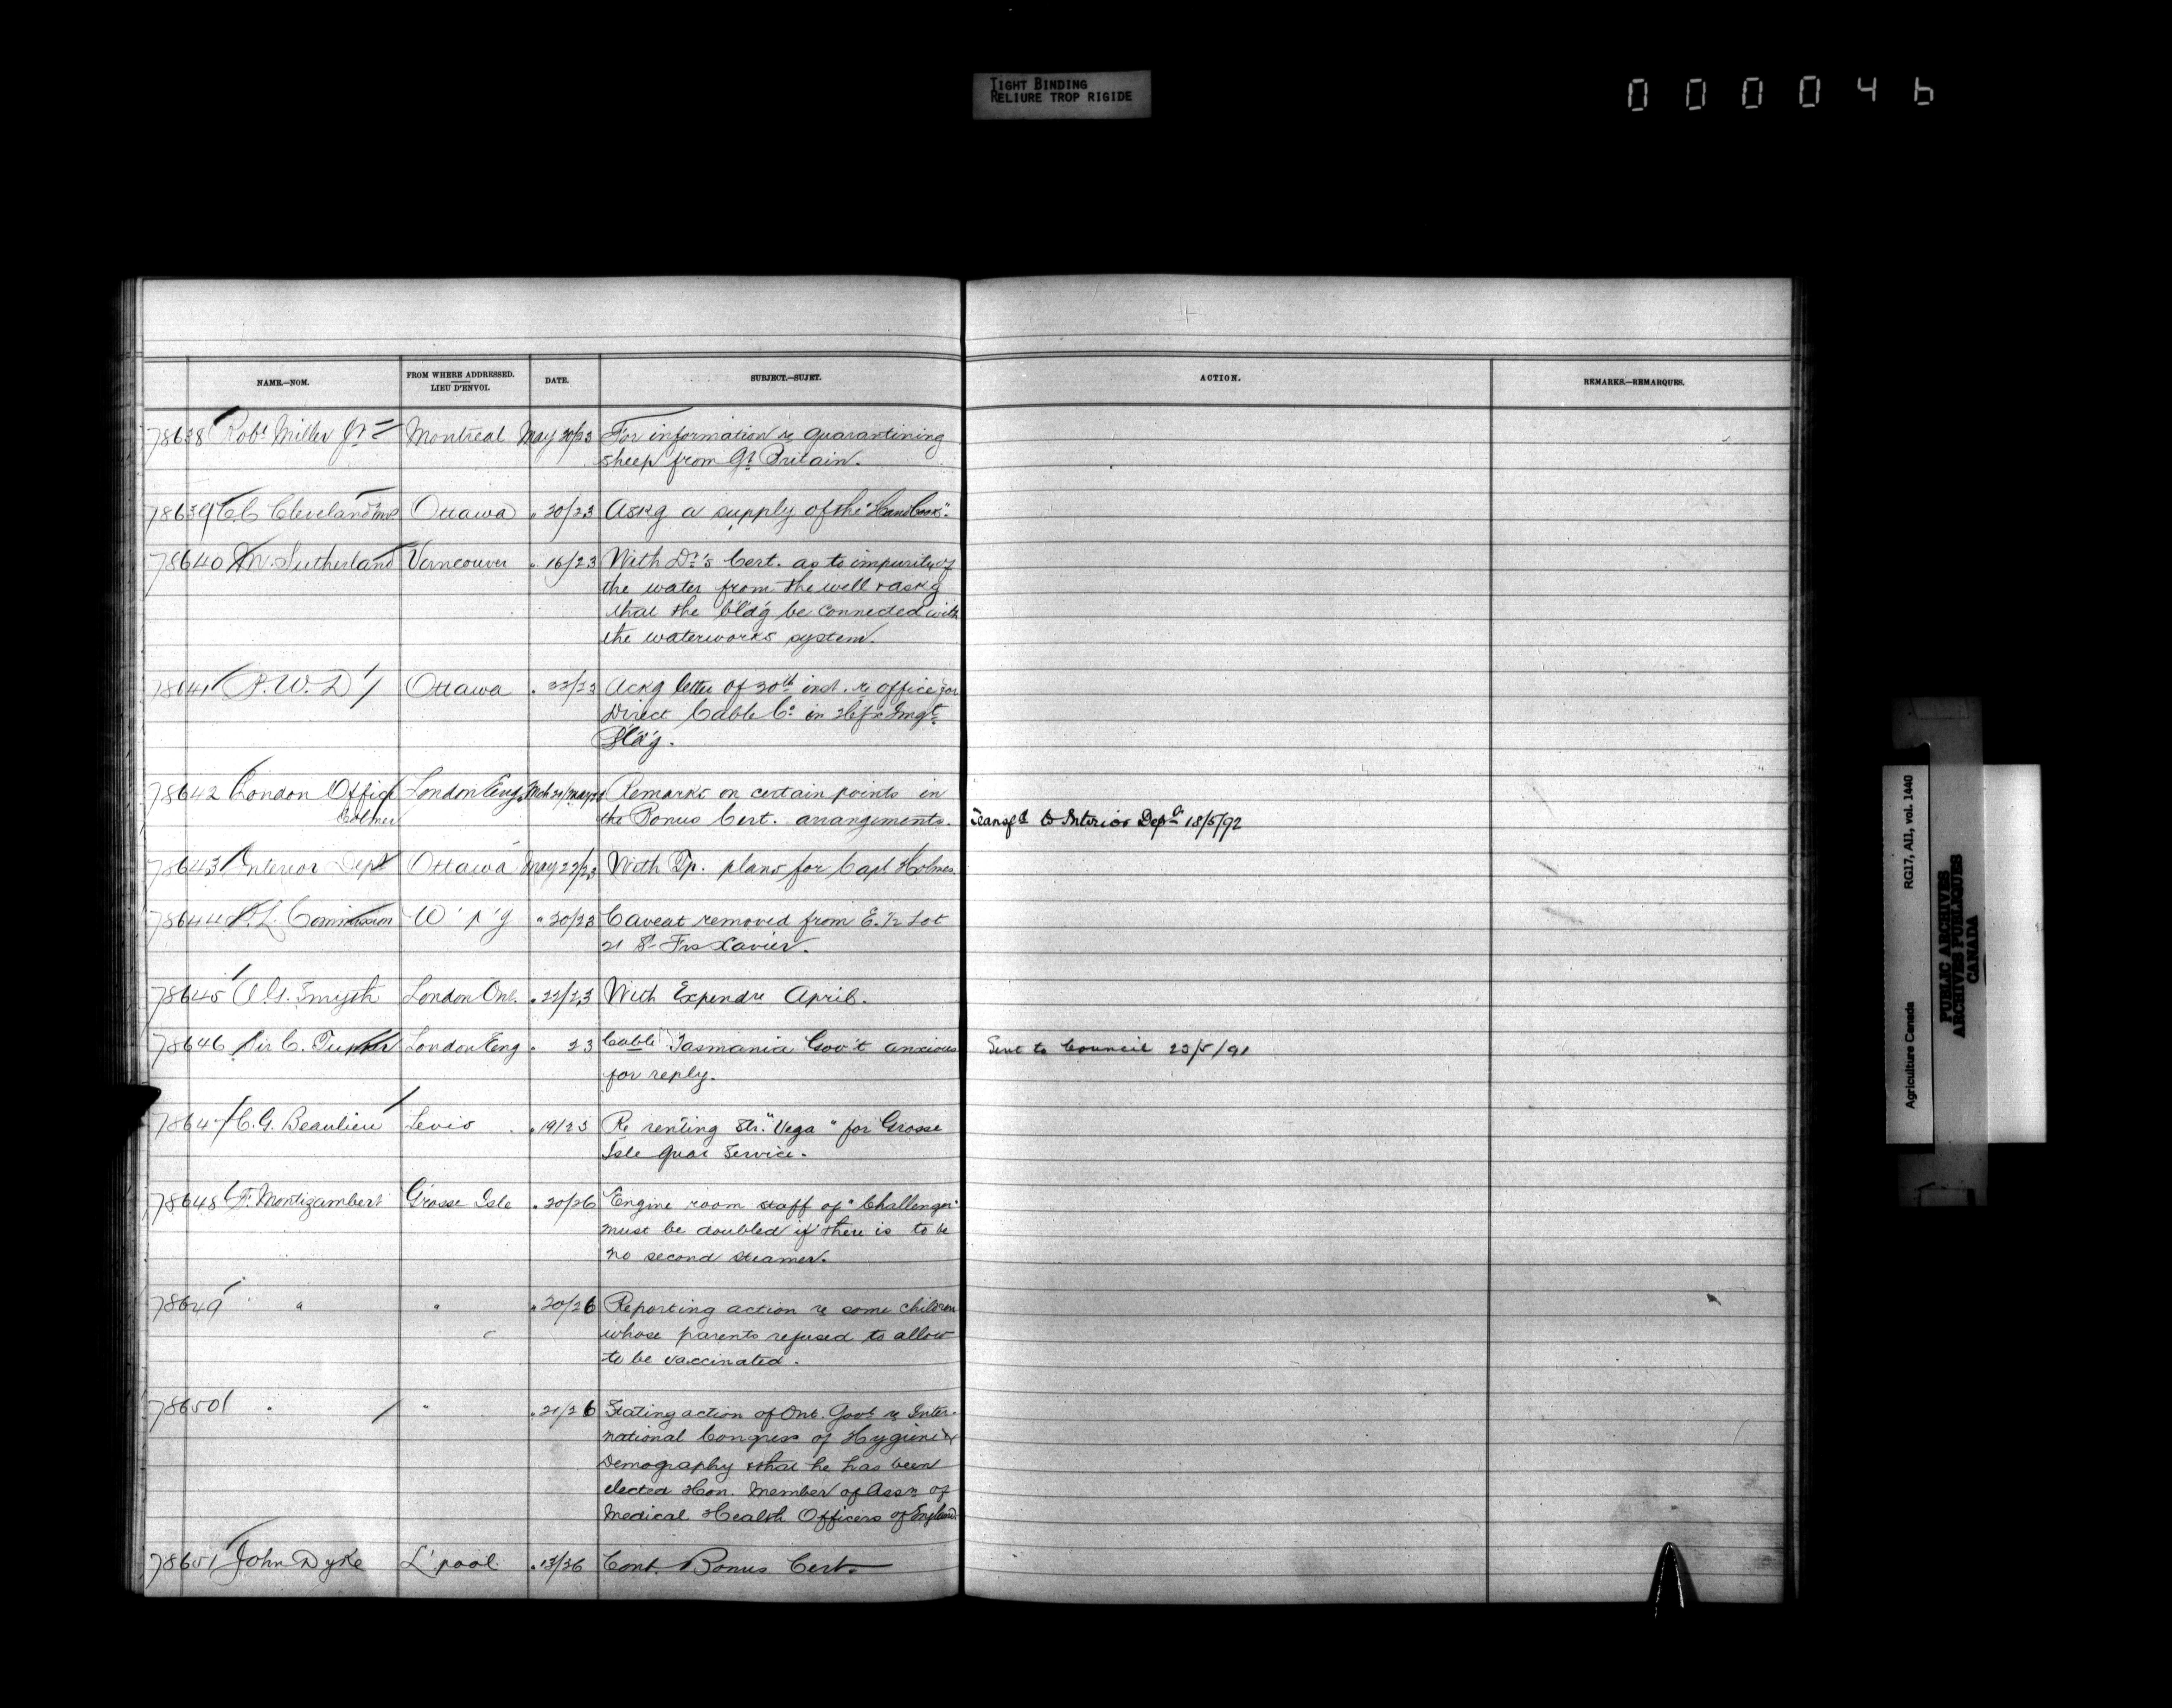 TIGHT BINDING
RELIURE TROP RIGIDE
000046
NAME.—NOM. FROM WHERE ADDRESSED. LIEU D'ENVOI. DATE. SUBJECT.—SUJET. ACTION. REMARKS.—REMARQUES.
78638 Robt Miller Jr Montreal May 20/23 For information re quarantining
sheep from Gt Britain.
78639 C.C. Cleveland M.P. Ottawa " 20/23 Askg a supply of the "Handbooks".
78640 Sutherland Vancouver " 16/23 With Dr's Cert. as to impurity of
the water from the well & askg
that the bld'g be connected with
the waterworks system.
78641 P.W.D. Ottawa " 22/23 Ackg letter of 20th inst. re office for
Direct Cable Co in Hfx Imgt
Bld'g.
78642 London Office London Eng. Remarks on certain points in
Colmer the Bonus Cert. arrangements. Transfd to Interior Dept 18/5/92
78643 Interior Dept Ottawa May 22/23 With Tp. plans for Capt Holmes.
78644 D.L. Commission W'p'g " 20/23 Caveat removed from E. 1/2 Lot
21 St Frs Xavier.
78645 A.G. Smyth London Ont. " 22/23 With Expendre April.
78646 Sir C. Tupper London Eng " 23 Cable Tasmania Gov't anxious Sent to Council 23/5/91
for reply.
78647 C.G. Beaulieu Levis " 19/23 Re renting Str. "Vega" for Grosse
Isle Quar Service.
78648 F. Montizambert Grosse Isle " 20/26 Engine room staff of "Challenger"
must be doubled if there is to be
no second steamer.
78649 " " " 20/26 Reporting action re some children
whose parents refused to allow
to be vaccinated.
78650 " " " 21/26 Stating action of Ont. Govt re Inter-
national Congress of Hygiene &
Demography & that he has been
elected Hon. Member of Assn of
Medical Health Officers of England
78651 John Dyke L'pool " 13/26 Cont. Bonus Cert.
Agriculture Canada RG17, AI1, vol. 1440
PUBLIC ARCHIVES
ARCHIVES PUBLIQUES
CANADA